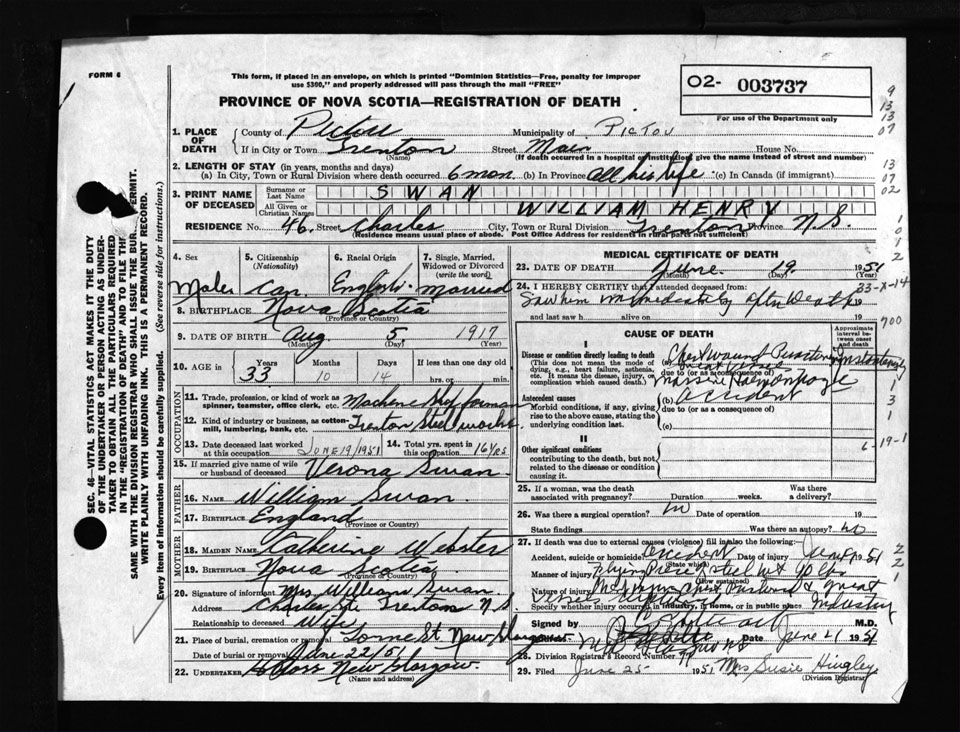 FORM 6
This form, if placed in an envelope, on which is printed "Dominion Statistics—Free, penalty for improper
use $300," and properly addressed will pass through the mail "FREE"
02- 003737
For use of the Department only
PROVINCE OF NOVA SCOTIA—REGISTRATION OF DEATH
1. PLACE OF DEATH County of Pictou Municipality of PICTOU
If in City or Town Trenton (Name) Street Main House No.
(If death occurred in a hospital or institution, give the name instead of street and number)
2. LENGTH OF STAY (in years, months and days)
(a) In City, Town or Rural Division where death occurred 6 mon. (b) In Province All his life (c) In Canada (if immigrant)
3. PRINT NAME OF DECEASED Surname or Last Name SWAN
All Given or Christian Names WILLIAM HENRY
RESIDENCE No. 46 Street Charles City, Town or Rural Division Trenton Province N.S.
(Residence means usual place of abode. Post Office Address for residents in rural parts not sufficient)
4. Sex Male
5. Citizenship (Nationality) Can.
6. Racial Origin English
7. Single, Married, Widowed or Divorced (write the word) Married
8. BIRTHPLACE Nova Scotia (Province or Country)
9. DATE OF BIRTH Aug (Month) 5 (Day) 1917 (Year)
10. AGE in Years 33 Months 10 Days 14 If less than one day hrs. or min.
OCCUPATION
11. Trade, profession, or kind of work as spinner, teamster, office clerk, etc. Machine Shop foreman
12. Kind of industry or business, as cotton-mill, lumbering, bank, etc. Trenton Steel works
13. Date deceased last worked at this occupation JUNE 19/1951
14. Total yrs. spent in this occupation 16 YRS
15. If married give name of wife or husband of deceased Verona Swan
FATHER
16. NAME William Swan
17. BIRTHPLACE England (Province or Country)
MOTHER
18. MAIDEN NAME Catherine Webster
19. BIRTHPLACE Nova Scotia (Province or Country)
20. Signature of informant Mrs William Swan
Address Charles St Trenton N.S.
Relationship to deceased Wife
21. Place of burial, cremation or removal Lorne St New Glasgow
Date of burial or removal June 22/51
22. UNDERTAKER New Glasgow
(Name and address)
MEDICAL CERTIFICATE OF DEATH
23. DATE OF DEATH June (Month) 19 (Day) 1951 (Year)
24. I HEREBY CERTIFY that I attended deceased from
Saw him immediately after Death 19
and last saw h alive on 19
33-X-14
CAUSE OF DEATH
Approximate interval between onset and death
I
Disease or condition directly leading to death (This does not mean the mode of dying, e.g., heart failure, asthenia, etc. It means the disease, injury, or complication which caused death.)
(a) Chest wound
due to (or as a consequence of)
Massive Haemorrhage
Antecedent causes
Morbid conditions, if any, giving rise to the above cause, stating the underlying condition last.
(b) accident
due to (or as a consequence of)
(c)
II
Other significant conditions contributing to the death, but not related to the disease or condition causing it.
25. If a woman, was the death associated with pregnancy? Duration weeks. Was there a delivery?
26. Was there a surgical operation? no Date of operation 19
State findings Was there an autopsy? no
27. If death was due to external causes (violence) fill in also the following:
Accident, suicide or homicide? accident (State which) Date of injury June 19 1951
Manner of injury Flying Piece Steel
(How sustained)
Nature of injury
Specify whether injury occurred in industry, in home, or in public place Industry
Signed by M.D.
Date June 21 1951
28. Division Registrar's Record Number
29. Filed June 25 1951 Mrs Susie Hingley
(Division Registrar)
SEC. 46—VITAL STATISTICS ACT MAKES IT THE DUTY
OF THE UNDERTAKER OR PERSON ACTING AS UNDER-
TAKER TO OBTAIN ALL THE PARTICULARS REQUIRED
IN THE "REGISTRATION OF DEATH" AND TO FILE
SAME WITH THE DIVISION REGISTRAR WHO SHALL ISSUE THE PERMIT.
WRITE PLAINLY WITH UNFADING INK. THIS IS A PERMANENT RECORD.
Every item of information should be carefully supplied. (See reverse side for instructions.)